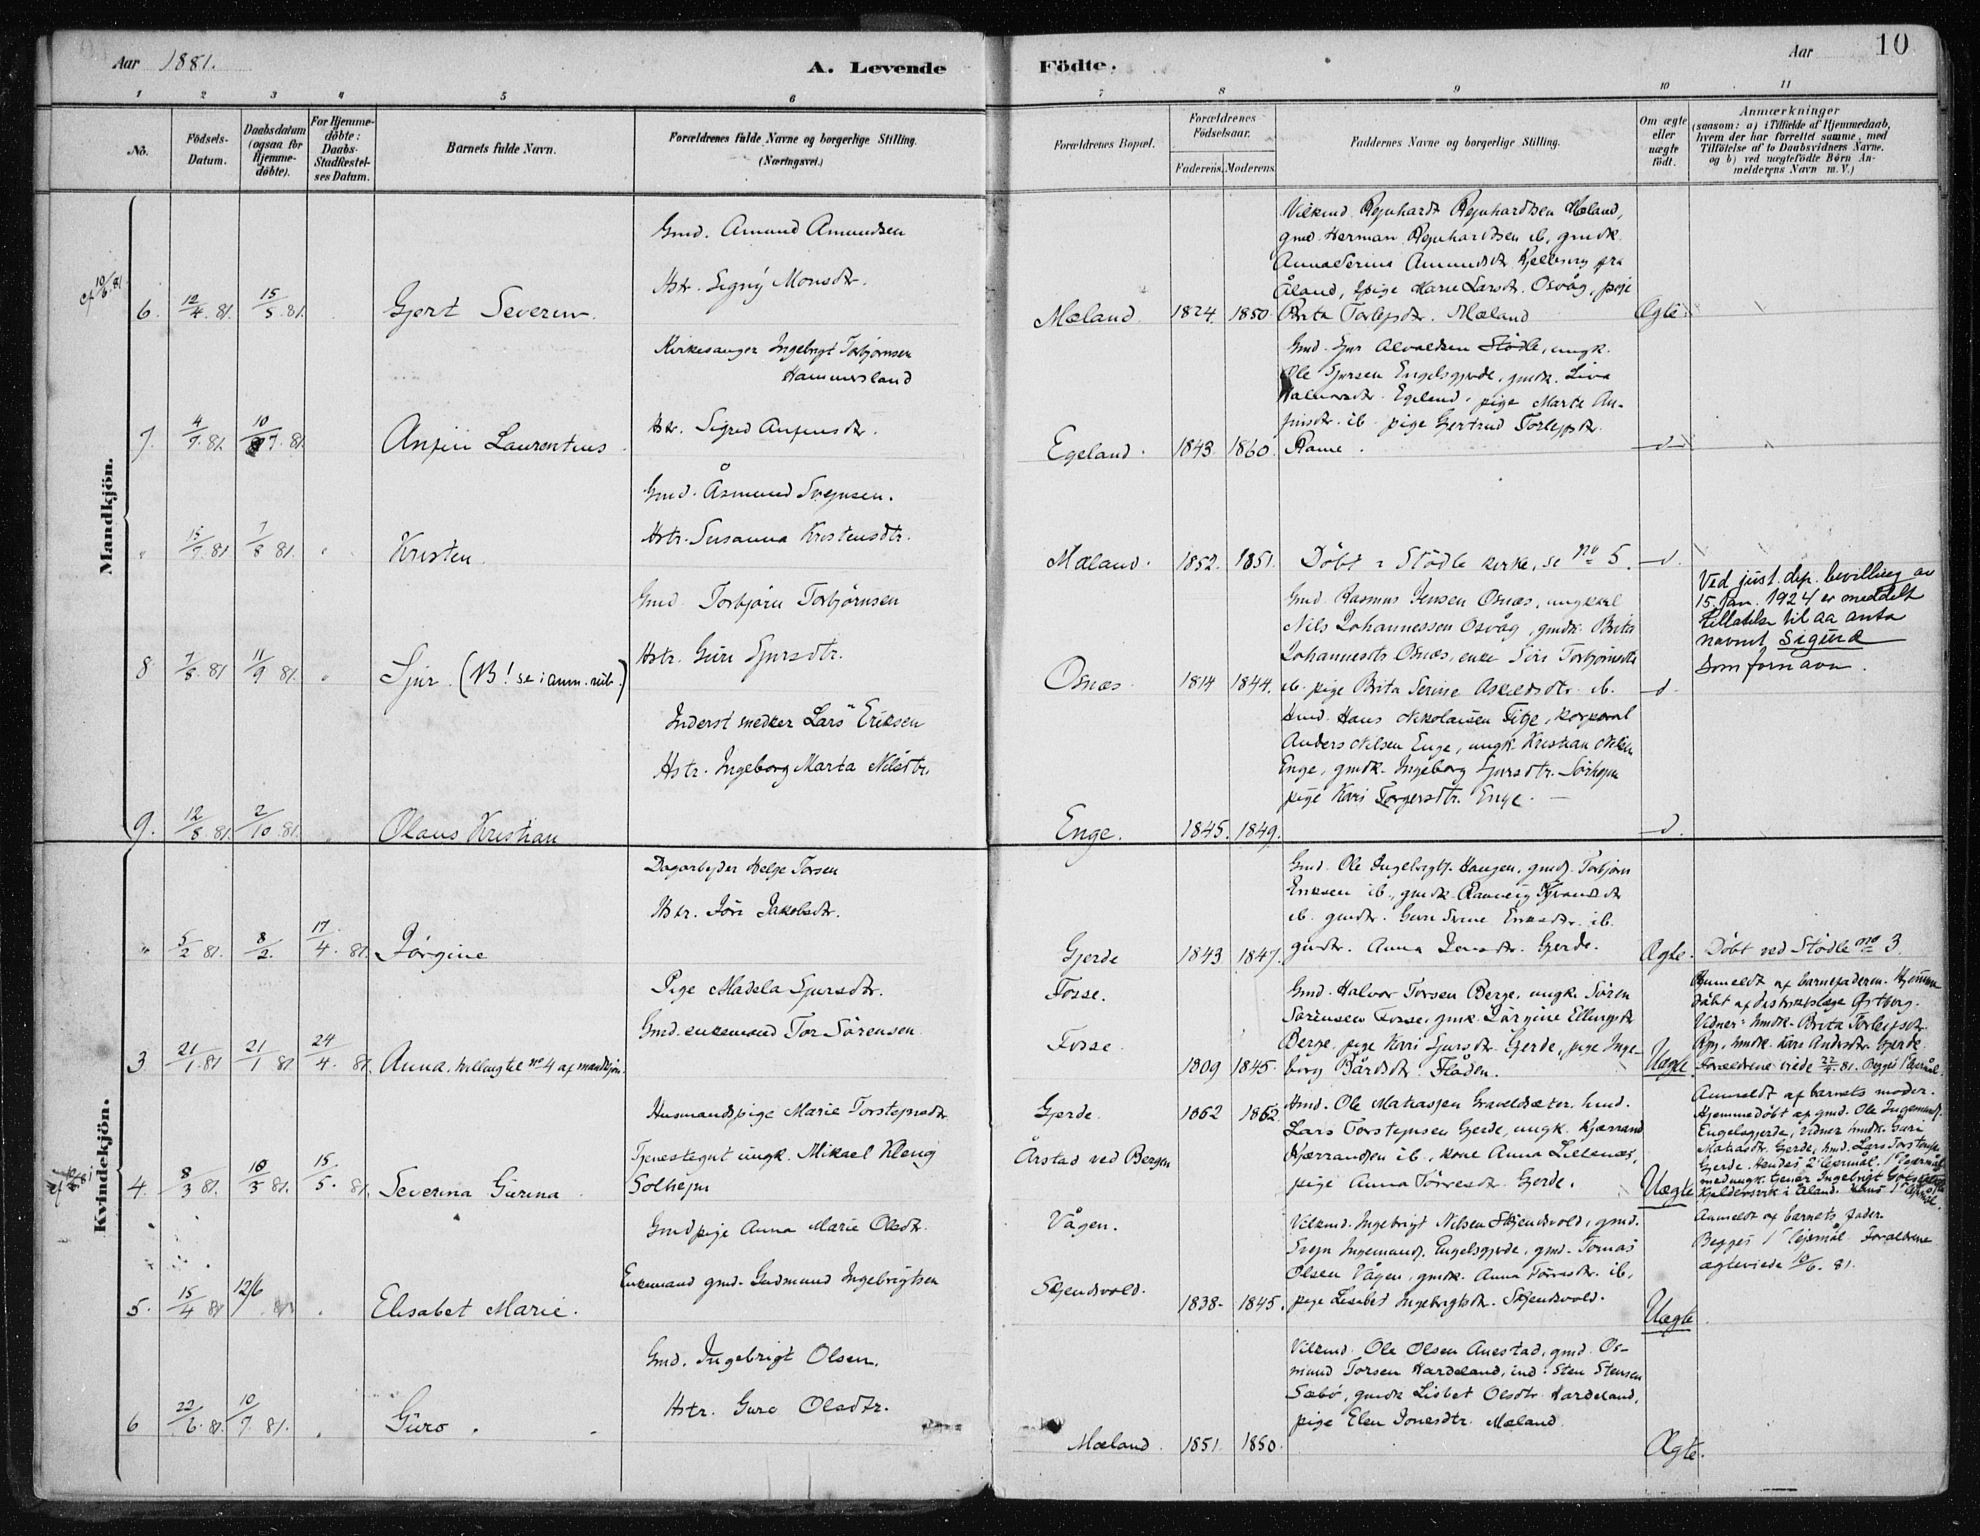 Aar 1881.
A. Levende
Födte.
Aar
10
1 2 3 4 5 6 7 8 9 10 11
No.
Födsels-
Datum.
Daabsdatum
(ogsaa for
Hjemme-
döbte).
For Hjemme-
döbte:
Daabs-
Stadfæstel-
ses Datum.
Barnets fulde Navn.
Forældrenes fulde Navne og borgerlige Stilling.
(Næringsvei.)
Forældrenes Bopæl.
Forældrenes
Födselsaar.
Faderens. Moderens.
Faddernes Navne og borgerlige Stilling.
Om ægte
eller
uægte
födt.
Anmærkninger
(saasom: a) i Tilfælde af Hjemmedaab,
hvem der har forrettet samme, med
Tilföielse af to Daabsvidners Navne.
og b) ved uægtefödte Börn An-
melderens Navn m. V.)
Mandkjön.
6. 12/4 81. 15/5 81. Gjert Severin.
Gmd. Amund Amundsen
Hstr. Signý Monsdtr.
Mæland. 1824. 1850.
Gmd. Herman Rejnhardtsen ib, gmdk.
Åland, pige Marie Larsdtr. Osvåg, pige
Brita Torlejsdtr. Mæland
Ægte
7. 4/7 81. 10/7 81. Anfin Laurentius.
Kirkesanger Ingebrigt Torbjørnsen
Hammersland
Hstr. Sigrid Anfinsdtr.
Egeland. 1843. 1860.
Ole Sjursen Engelsgjerde, gmdk. Liva
Halvorsdtr. Egeland, pige Marta An-
finsdtr. ib. pige Gertrud Torlejsdtr.
Rame.
-d-
" 15/7 81. 7/8 81. " Kristen.
Gmd. Åsmund Svejnsen.
Hstr. Susanna Kristensdtr.
Mæland. 1852. 1851. Döbt i Stödle kirke, se No 5. -d.
8 7/8 81 11/9 81. " Sjur. (NB! se i anm. rub.)
Gmd. Torbjörn Torbjörnsen
Hstr. Guri Sjursdtr.
Osnæs. 1814 1844.
Gmd. Rasmus Jensen Osnæs, ungkarl
Nils Johannessen Osvåg, gmdk. Brita
Johannesdtr Osnæs, enke Siri Torbjörnsdtr
ib. pige Brita Serine Askildsdtr. ib.
-d.
Ved just. dep. bevilling av
15. Jan. 1924 er meddelt
tillatelse til aa anta
navnet Sigurd
som fornavn.
9. 12/8 81. 2/10 81. " Olaus Kristian
Inderst snedker Lars Eriksen
Hstr. Ingeborg Marta Nilsdtr.
Enge. 1845. 1849.
Hmd. Hans Nikolaisen Tige, korporal
Anders Nilsen Enge, ungk. Kristian Nilsen
Enge, gmdk. Ingeborg Sjursdtr. Sörhejm
pige Kari Torgersdtr. Enge.
-d.
Kvindekjön.
" 5/2 81. 8/2. 17/4. 81. Jörgine
Dagarbejder Helge Torsen
Hstr. Jóri Jakobsdtr.
Gjerde 1843 1847.
Gmd. Ole Ingebrigts. Haugen, gmd. Torbjörn
Eriksen ib., gmdk.
ib. gmdtr. Guri Eriksdtr. ib.
gmdtr. Anna Jensdtr. Gjerde.
Ægte. Döbt ved Stödle no 3.
3 21/1 81 21/1 81 24/4. 81. Anna, tvillingte no 4 af mandkjön.
Pige Madela Sjursdtr.
Gmd. enkemand Tor Sörensen
Fosse.
Fosse.
1809 1845.
Gmd. Halvor Torsen Berge, ungk. Sören
Sörensen Fosse, gmdk. Jörgine Ellingsdtr
Berge, pige Kari Sjursdtr. Gjerde, pige Inge-
borg Bårdsdtr. Flåden.
Uægte
Anmeldt af barnefaderen. Hjemme
döbt af distriktslæge Ørsborg.
Vidner: hmdk. Brita Torlejsdtr.
Forældrene viede 22/4. 81. Begges 1 lejermål.
4. 8/3 81. 10/3 81. 15/5. 81. Severina Gurina.
Husmandspige Marie Torstejnsdtr.
Tjenestegut ungk. Mikael Kleng
Solhejm
Gjerde.
Årstad ved Bergen
1862 1862
Hmd. Ole Matiasen Graveldsæter, hmd.
Lars Torstejnsen Gjerde, ungk. Kjærrand
Kjærrandsen ib., kone Anna Lillenæs,
pige Anna Törresdtr. Gjerde.
Uægte
Anmeldt af barnets moder.
Hjemmedöbt af gmd. Ole Ingemunds.
Engelsgjerde, Vidner hmdk. Guri
Matiasdtr. Gjerde, hmd. Lars Torstejns.
Gjerde. Hendes 2 lejermål. 1 lejermål
5. 15/4 81 12/6 81. " Elisabet Marie.
Gmdpige Anna Marie Olsdtr.
Enkemand gmd. Gudmund Ingebrigtsen
Vågen.
Skjendsvold.
1838- 1845.
Vilkmd. Ingebrigt Nilsen Skjendsvold, gmd.
Svejn Ingemunds. Engelsgjerde, gmd. Tomas
Olsen Vågen, gmdk. Anna Törresdtr. ib,
pige Lisabet Ingebrigtsdtr. Skjendsvold.
Uægte
Anmeldt af barnets fader.
Begges 1 lejermål. Forældrene
ægteviede 10/6. 81.
6 22/6. 81. 10/7 81. " Guro
Gmd. Ingebrigt Olsen.
Hstr. Guro Olsdtr.
Mæland. 1851. 1850.
Vilkmd. Ole Olsen Anestad, gmd. Os-
mund Torsen Hardeland, ind. Sten Stensen
Sæbö, gmdk Lisbet Olsdtr. Hardeland,
pige Elen Jonesdtr. Mæland.
Ægte.